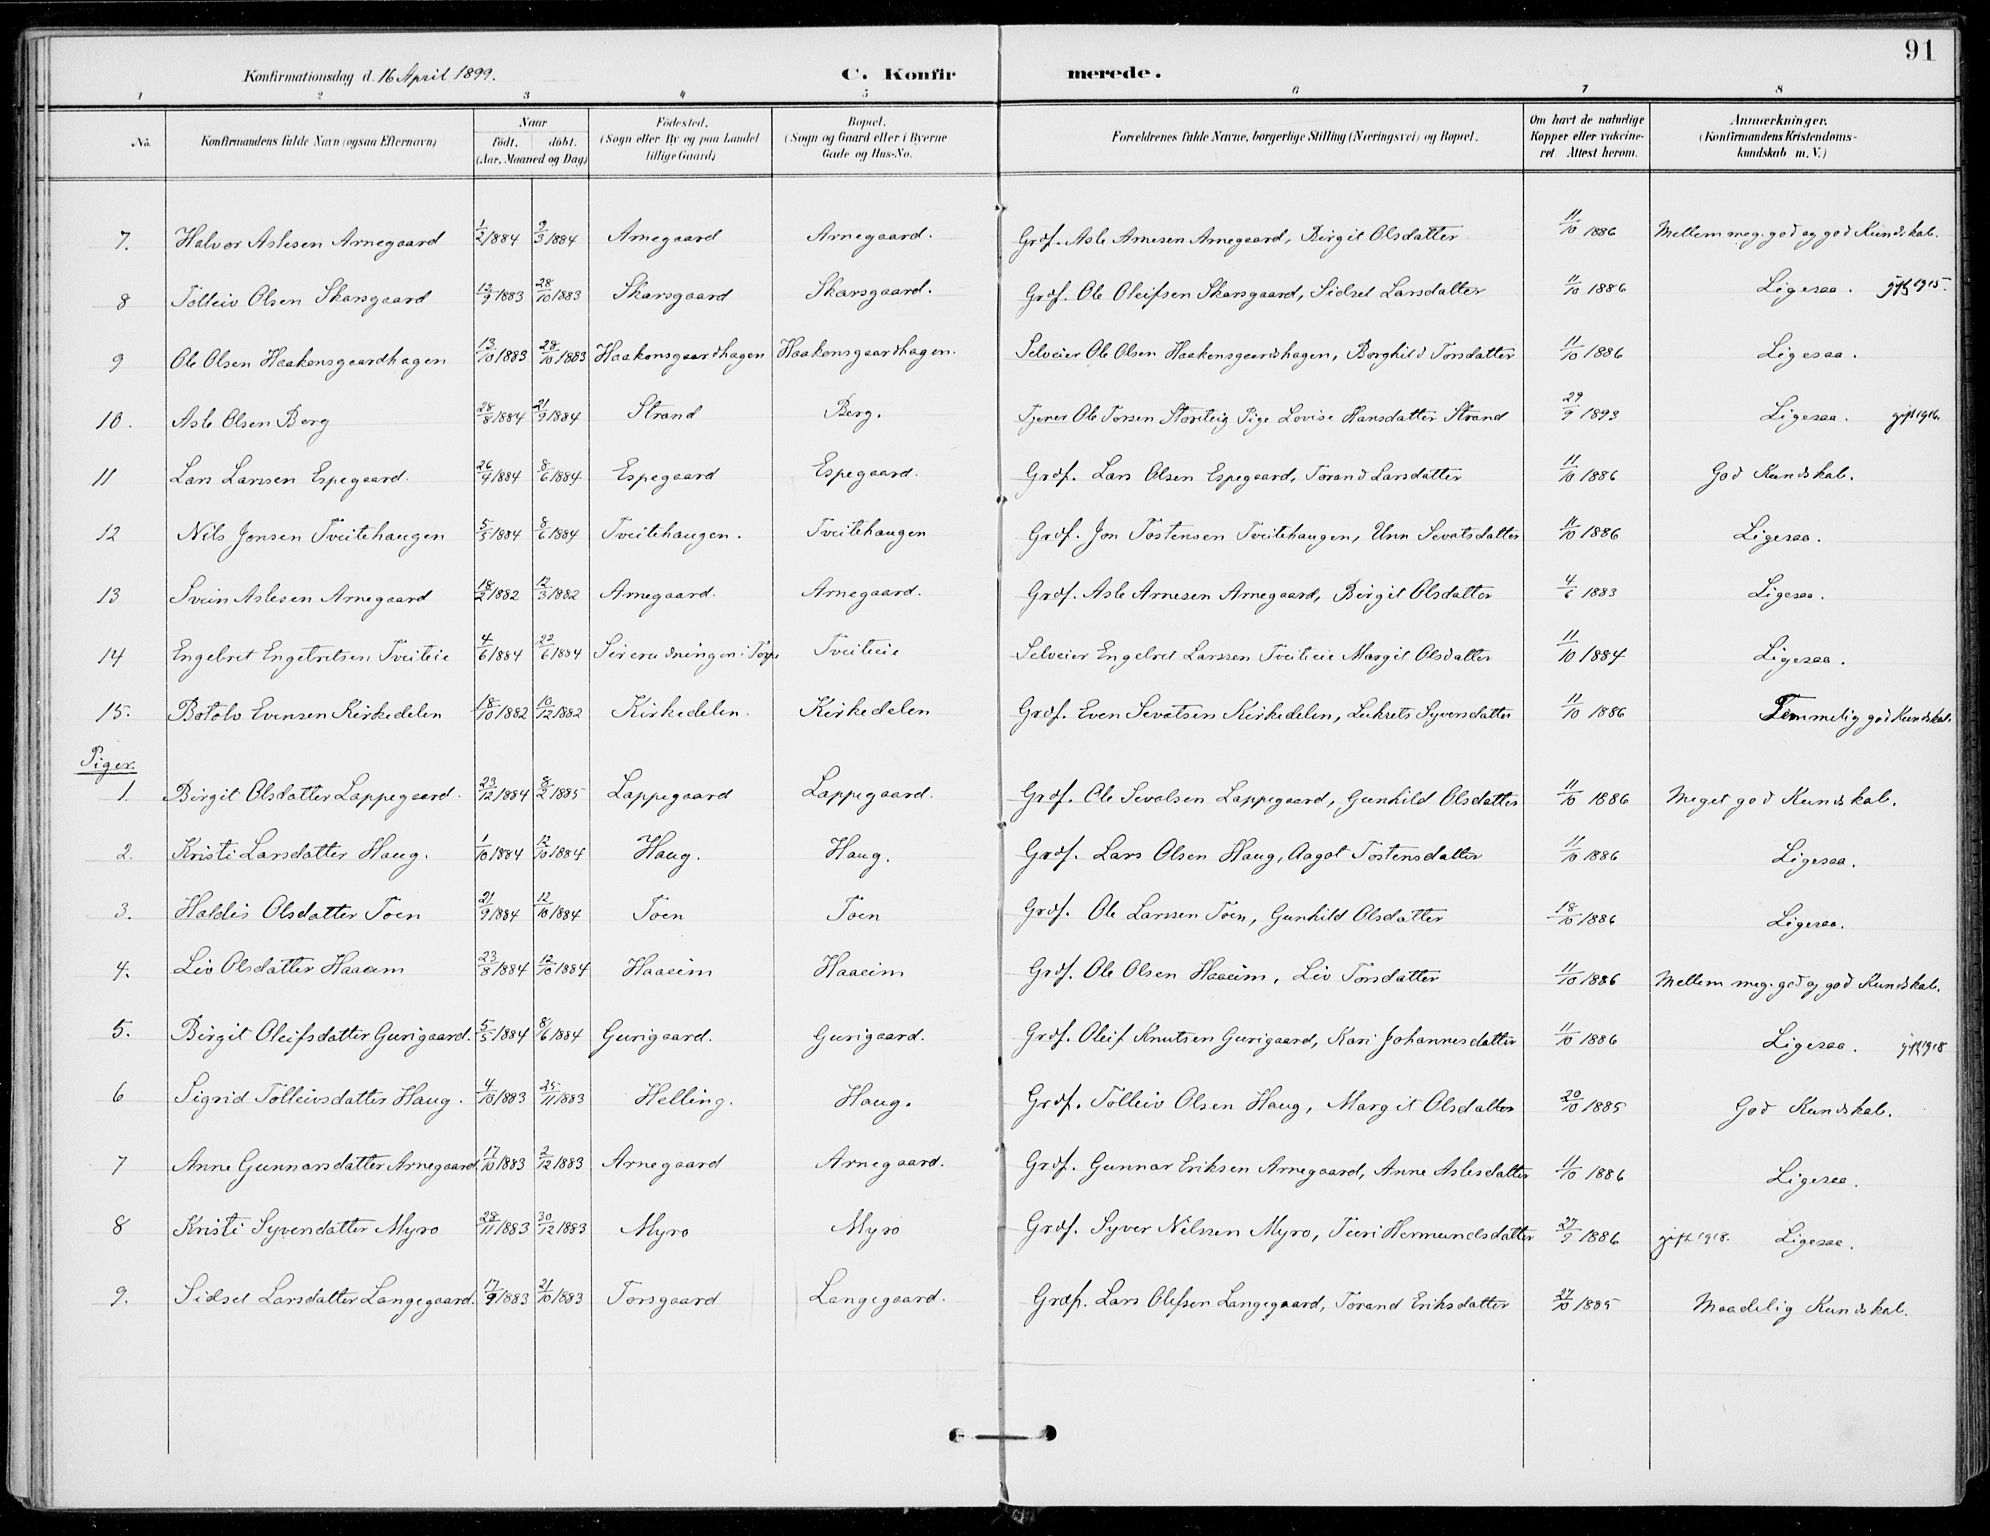 91
Konfirmationsdag d. 16 April 1899. C. Konfirmerede.
1 2 3 4 5 6 7 8
No. Konfirmandens fulde Navn (ogsaa Efternavn) Naar født, døbt. (Aar, Maaned og Dag) Fødested. (Sogn eller By og paa Landet tillige Gaard) Bopæl. (Sogn og Gaard eller i Byerne Gade og Hus-No. Forældrenes fulde Navne, borgerlige Stilling (Næringsvei) og Bopæl. Om havt de naturlige Kopper eller vakcineret. Attest herom. Anmærkninger. (Konfirmandens Kristendomskundskab m. V.)
7. Halvor Aslesen Arnegaard 1/2 1884 9/3 1884 Arnegaard Arnegaard. Grdf. Asle Arnesen Arnegaard, Birgit Olsdatter 11/10 1886 Mellem meg. god og god Kundskab.
8 Tolleiv Olsen Skarsgaard 12/9 1883 28/10 1883 Skarsgaard Skarsgaard. Grdf. Ole Oleifsen Skarsgaard, Sidsel Larsdatter 11/10 1886 Ligesaa. gift 1915.
9 Ole Olsen Haakensgaardhagen 13/10 1883 28/10 1883 Haakonsgaardhagen Haakonsgaardhagen. Selveier Ole Olsen Haakensgaardshagen, Borghild Torsdatter 11/10 1886 Ligesaa.
10. Asle Olsen Berg 28/8 1884 21/9 1884 Strand Berg. Tjener Ole Torsen Storeteig Pige Lovise Hansdatter Strand 29/9 1893 Ligesaa. gift 1916.
11 Lars Larssen Espegaard. 26/4 1884 8/6 1884 Espegaard Espegaard. Grdf. Lars Olsen Espegaard, Torand Larsdatter 11/10 1886 God Kundskab.
12 Nils Jonsen Tveitehaugen 5/5 1884 8/6 1884 Tveitehaugen. Tveitehaugen Grdf. Jon Tostensen Tveitehaugen, Unn Sevatsdatter 11/10 1886 Ligesaa.
13 Svein Aslesen Arnegaard 18/2 1882 12/3 1882 Arnegaard. Arnegaard. Grdf. Asle Arnesen Arnegaard, Birgit Olsdatter 4/6 1883 Ligesaa.
14 Engebret Engebretsen Tveiteie 4/6 1884 22/6 1884 i Torpe Tveiteeie Selveier Engebret Larssen Tveiteie Margit Olsdatter 11/10 1884 Ligesaa.
15. Botolv Evensen Kirkedelen 18/10 1882 10/12 1882 Kirkedelen. Kirkedelen Grdf. Even Sevatsen Kirkedelen, Lukrets Syversdatter 11/10 1886 Temmelig god Kundskab.
Piger.
1. Birgit Olsdatter Lappegaard. 23/12 1884 8/2 1885 Lappegaard Lappegaard. Grdf. Ole Sevatsen Lappegaard, Gunhild Olsdatter 11/10 1886 Meget god Kundskab.
2. Kristi Larsdatter Haug. 1/10 1884 12/10 1884 Haug. Haug. Grdf. Lars Olsen Haug, Aagot Tostensdatter 11/10 1886 Ligesaa.
3. Haldis Olsdatter Toen 21/9 1884 12/10 1884 Toen Toen Grdf. Ole Larssen Toen, Gunhild Olsdatter 18/10 1886 Ligesaa.
4. Liv Olsdatter Haaeim 23/8 1884 12/10 1884 Haaeim Haaeim Grdf. Ole Olsen Haaeim, Liv Torsdatter 11/10 1886 Mellem meg. god og god Kundskab.
5. Birgit Oleifsdatter Gurigaard. 5/5 1884 8/6 1884 Gurigaard. Gurigaard. Grdf. Oleif Knutsen Gurigaard, Kari Johannesdatter 11/10 1886 Ligesaa. gift 1918
6 Sigrid Tolleivsdatter Haug. 4/10 1883 25/11 1883 Helling. Haug. Grdf. Tolleiv Olsen Haug, Margit Olsdatter 20/10 1885 God Kundskab.
7 Anne Gunnarsdatter Arnegaard 17/10 1883 2/12 1883 Arnegaard Arnegaard. Grdf. Gunnar Eriksen Arnegaard, Anne Aslesdatter 11/10 1886 Ligesaa.
8 Kristi Syversdatter Myro 28/11 1883 30/12 1883 Myro Myro Grdf. Syver Nilssen Myro, Turi Hermundsdatter 27/9 1886 gift 1918. Ligesaa.
9. Sidsel Larsdatter Langegaard. 17/9 1883 21/10 1883 Torsgaard Langegaard. Grdf. Lars Olefsen Langegaard, Torand Eriksdatter 27/10 1885 Maadelig Kundskab.